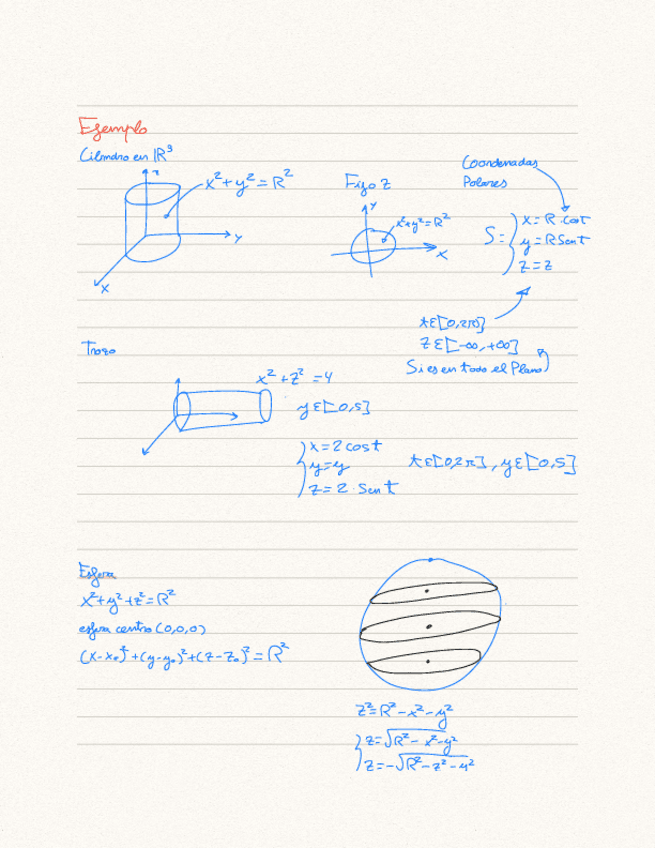 Ejemplo
Cilindro en ℝ³
z
x²+y²=R²
Y
X
Fijo Z
Y
x²+y²=R²
X
Coordenadas
Polares
S = { x = R·cost
y = R Sent
z = z
t ε [0,2π]
Z ε [-∞,+∞]
Si es en todo el Plano
Trozo
x²+z²=4
y ε [0,5]
{ x = 2 cost
y = y
z = 2·Sent
t ε [0,2π], y ε [0,5]
Esfera
x²+y²+z²=R²
esfera centro (0,0,0)
(x-x₀)²+(y-y₀)²+(z-z₀)²=R²
z²=R²-x²-y²
{ z=√R²-x²-y²
z=-√R²-z²-y²